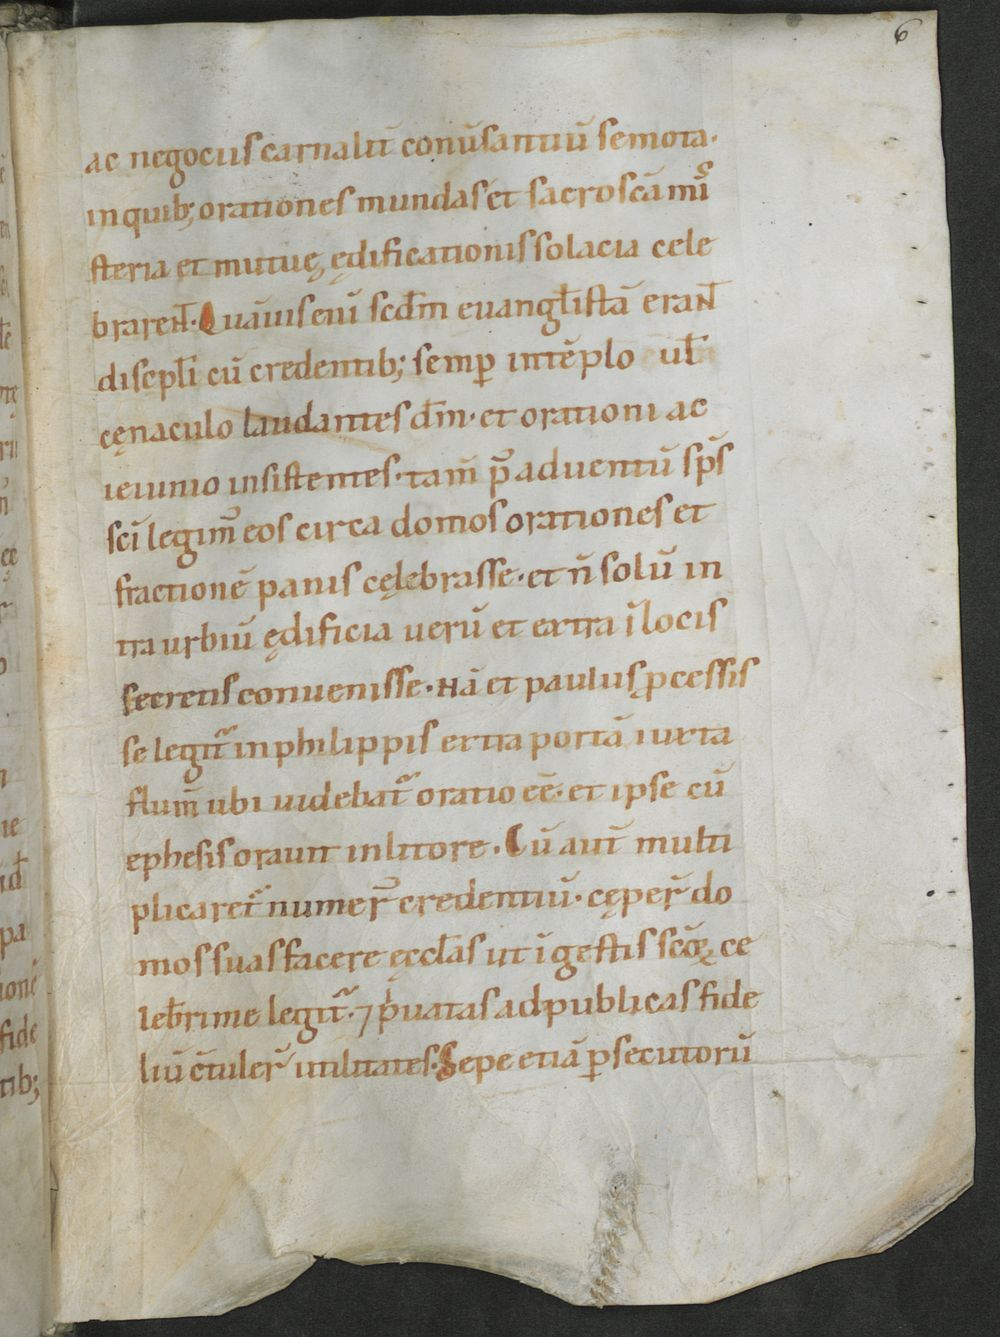 6
ac negociis carnaliū conūsantiū semota·
in quib; orationes mundas et sacroscā mı̄
steria et mutuę ędificationis solacia cele
brareN̄· Quāuis eni̅ scdm̄ euangl̄istā eraN̄
discpl̄i cū credentib; semꝑ in tēplo ul̄
cęnaculo laudantes dm̄· et orationi ac
ieiunio insistentes· tam̄ p̄ aduentū sps̄
sci̅ legim᷒ eos circa domos orationes et
fractionē panis cęlebrasse· et n̄ solū in
tra urbiū ędificia uerū et extra i̅ locis
secretis conuenisse· Nā et paulus ꝓcessis
se legit᷑ in philippis extra portā iuxta
flum̄ ubi uidebat᷑ oratio ee̅· et ipse cū
ephesis orauit in litore· Cū aut̄ multi
plicaret᷑ numer᷒ credentiū· cęper̄ do
mos suas facere ęccl̄as ut i̅ gestis scōꝝ ce
leb̄rime legit᷑· ⁊ p̍uatas ad publicas fide
liū c̄tuler̄ utilitates· Sepe etiā ꝑsecutorū